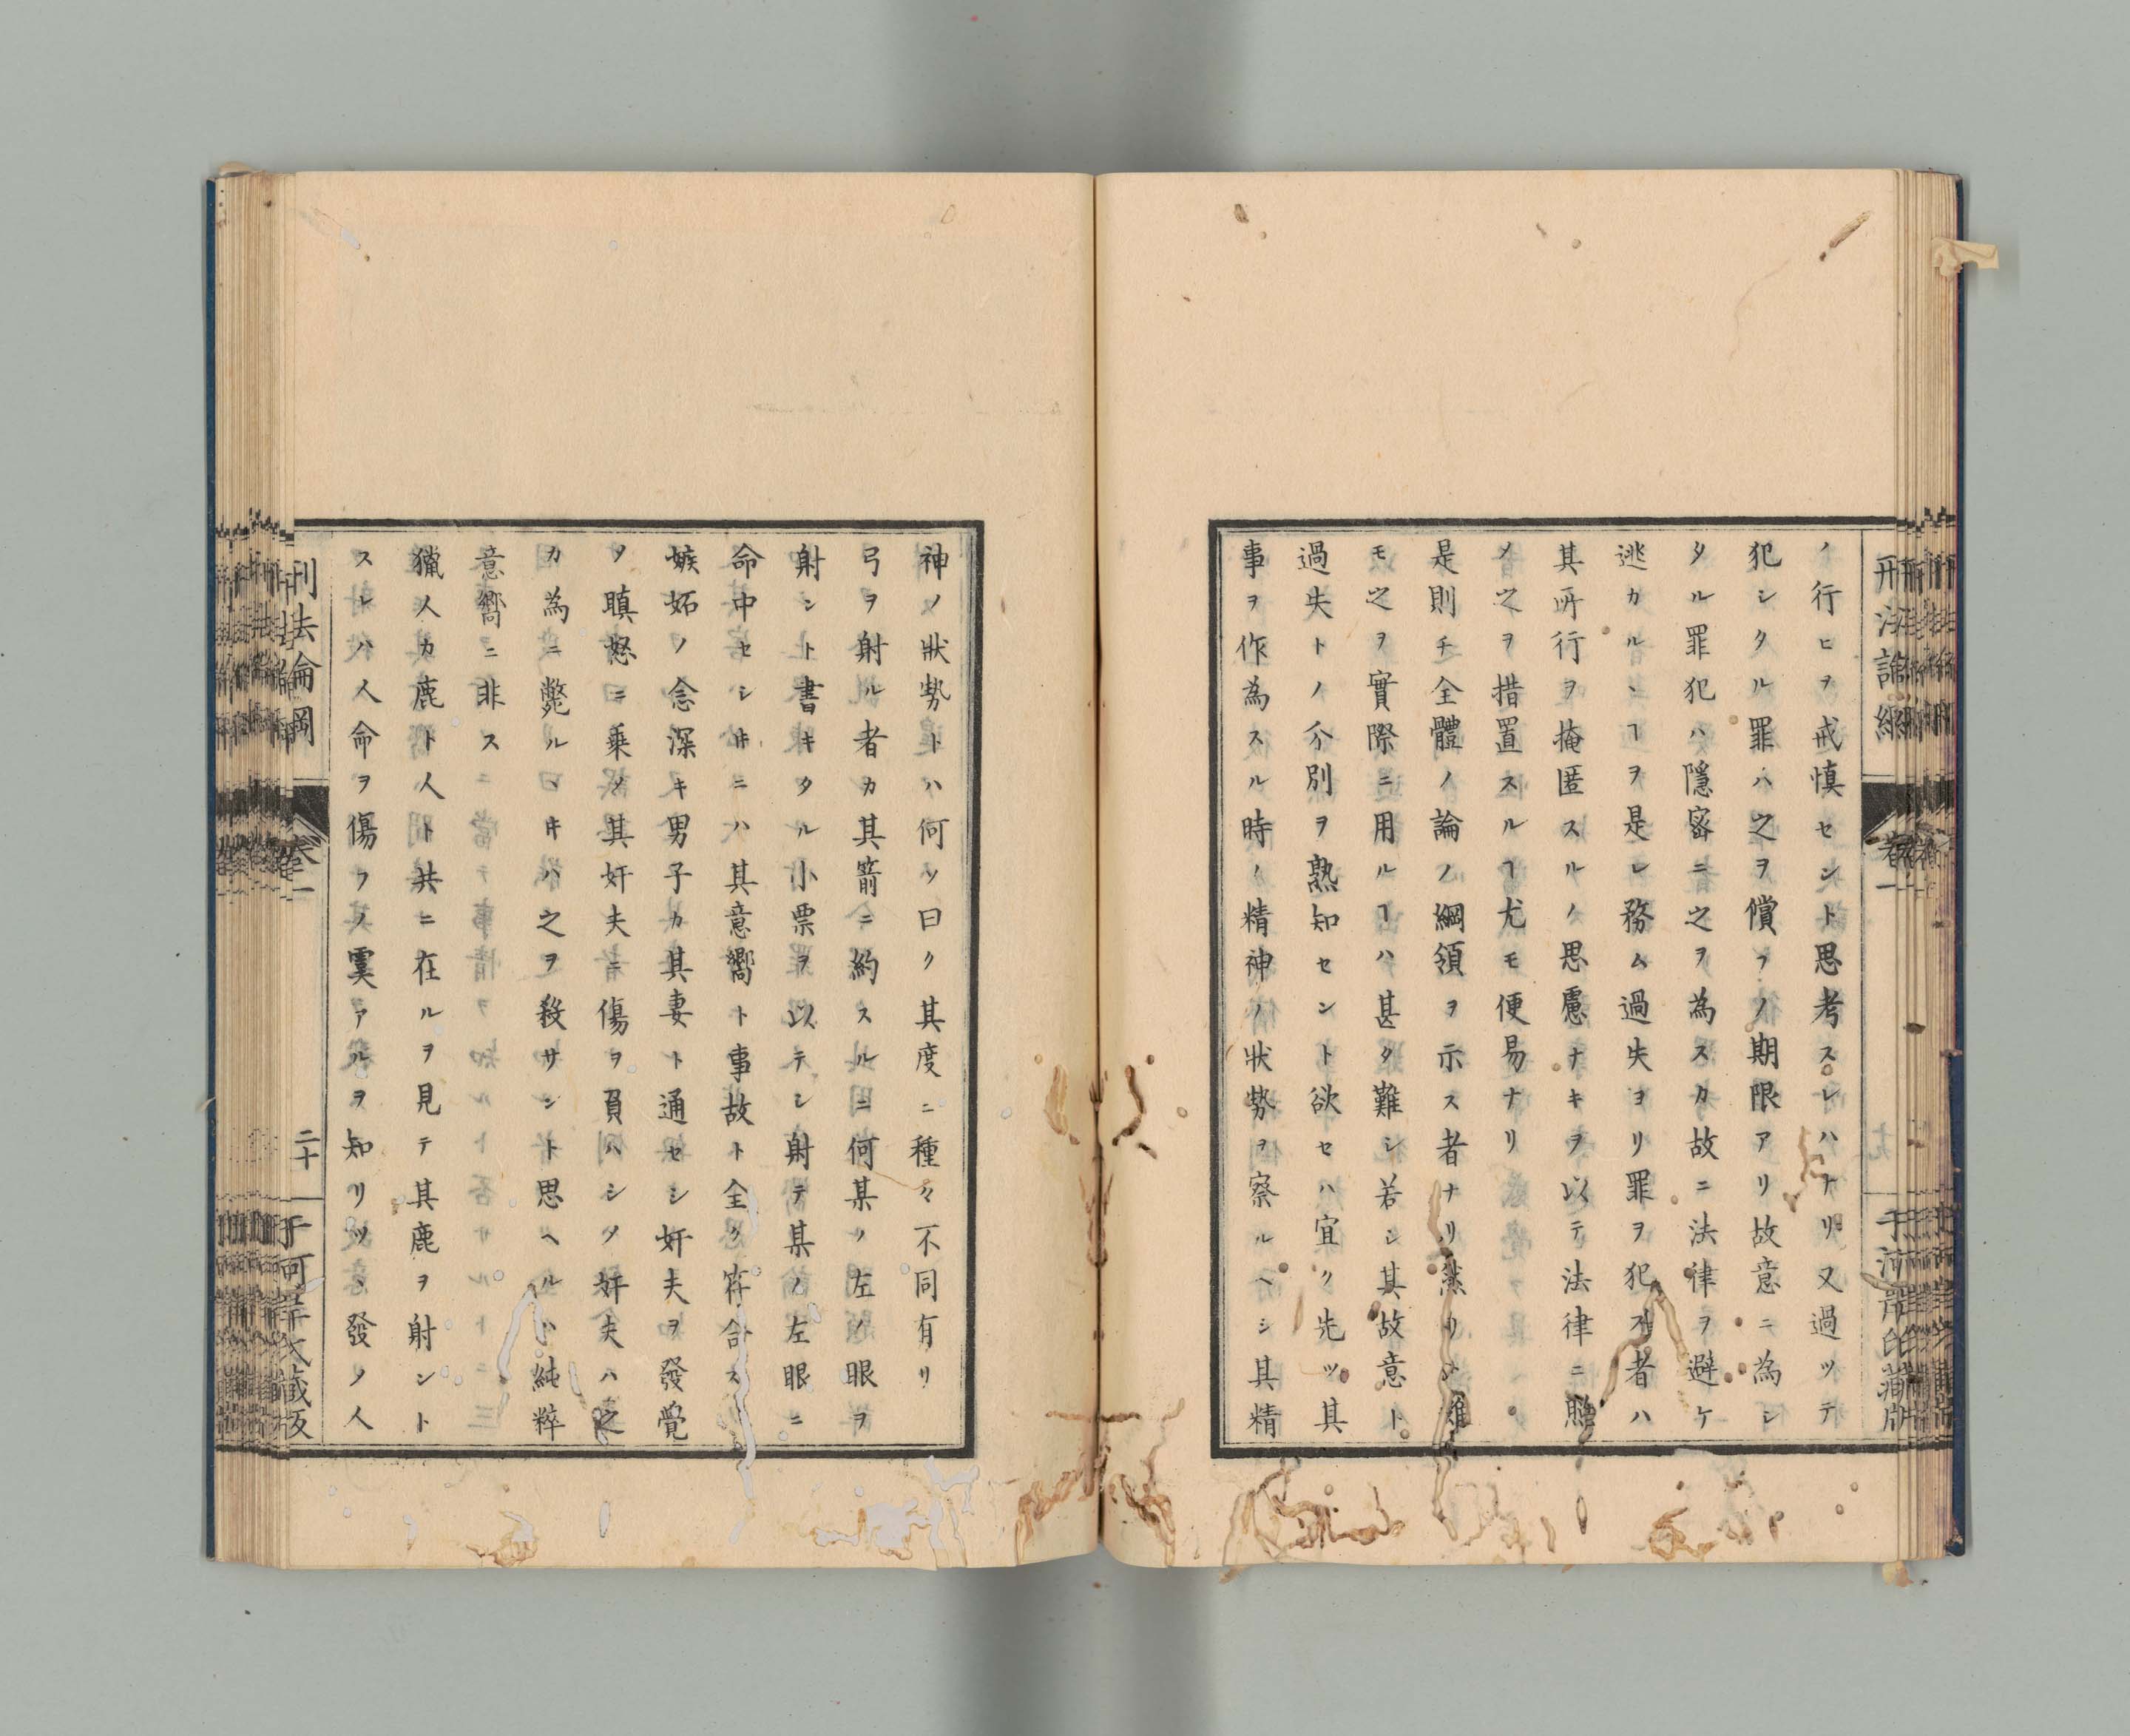 刑法論綱
卷一
ノ行ヒヲ戒愼セント思考スレハナリ又過ツテ
犯シタル罪ハ之ヲ償フノ期限アリ故意ニ為シ
タル罪犯ハ隱宻ニ之ヲ為スカ故ニ法律ヲ避ケ
逃カルヽヿヲ是レ務ム過失ヨリ罪ヲ犯ス者ハ
其所行ヲ掩匿スルノ思慮ナキヲ以テ法律ニ照
ノ之ヲ措置スルヿ尤モ便易ナリ
是則チ全體ノ論ノ綱領ヲ示ス者ナリ然リト雖
モ之ヲ實際ニ用ルヿハ甚タ難シ若シ其故意ト
過失トノ分別ヲ熟知セント欲セハ宜ク先ツ其
事ヲ作為スル時ノ精神ノ狀勢ヲ察ルヘシ其精
神ノ狀勢トハ何ソ曰ク其度ニ種々不同有リ
弓ヲ射ル者カ其箭ニ約スルニ何某ノ左ノ眼ヲ
射ント書キタル小票ヲ以テシ射テ其ノ左眼ニ
命中セシ䒑ニハ其意嚮ト事故ト全ク符合ス
嫉妬ノ念深キ男子カ其妻ト通セシ奸夫ヲ發覺
タ瞋怒ニ乘ノ其奸夫ニ傷ヲ負ハシタ奸夫ハ之
カ為ニ斃ルヽ䒑ハ之ヲ殺サント思ヘルハ純粹
意嚮ニ非ス
獵人カ鹿ト人ト共ニ在ルヲ見テ其鹿ヲ射ント
スレハ人命ヲ傷フノ虞アルヲ知リツヽ發ノ人
刑法論綱
卷一
二十
千河岸氏藏版